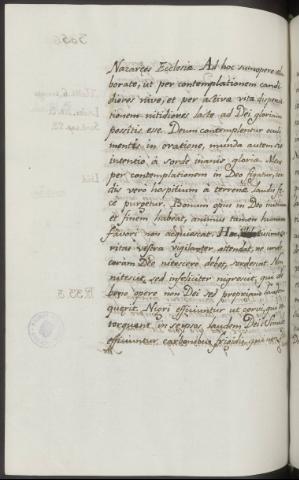 Nazaræos Ecclesiæ. Ad hoc summopere ela
borate, ut per contemplationem candi
diores nive, et per activæ vitæ dispensa
tionem nitidiores lacte ad Dei gloriam
possitis esse. Deum contempletur oculus
mentis in oratione, munda autem sit
intentio à sorde inanis gloriæ. Mens
per contemplationem in Deo figatur,
vero hospitium à terrena laudis fæ
ce purgetur. Bonum opus in Deo initium
et finem habeat, animus tamen humano
favori non acquiescat. Hæc
vestra vigilanter attendat, ne unde
coram Deo nitescere debet, sordescat. Non
nitescit, sed infeliciter nigrescit, qui de
bono opere non Dei sed propriam laudem
quærit. Nigri efficiuntur ut corvi, qui re
torquent in seipsos laudem Dei. Similes
efficiuntur carbonibus frigidis, qui